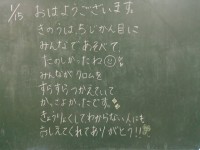 1/15
おはようございます
きのうは、5じかん目に
みんなであそべて、
たのしかったね
みんながクロムを
すらすらつかえていて
かっこよかったです。
きょうりょくして、わからない人にも
おしえてくれてありがとう!!